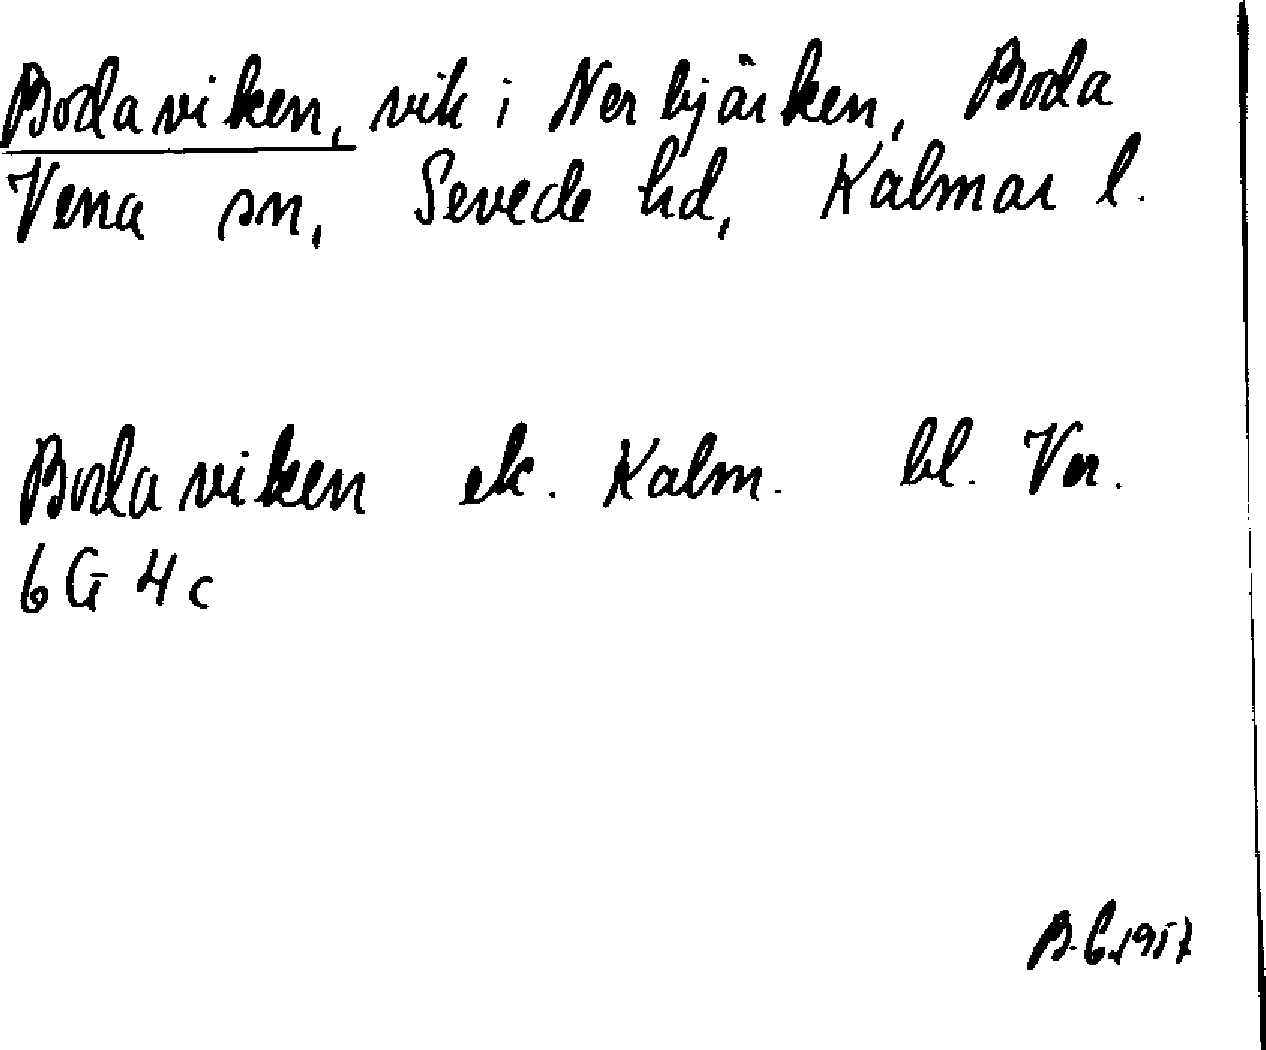 Bodaviken, vik i Nerbjärken, Boda
Vena sn, Sevede hd, Kalmar l.
Bodaviken ek. Kalm. bl. Ver.
6G 4c
1957